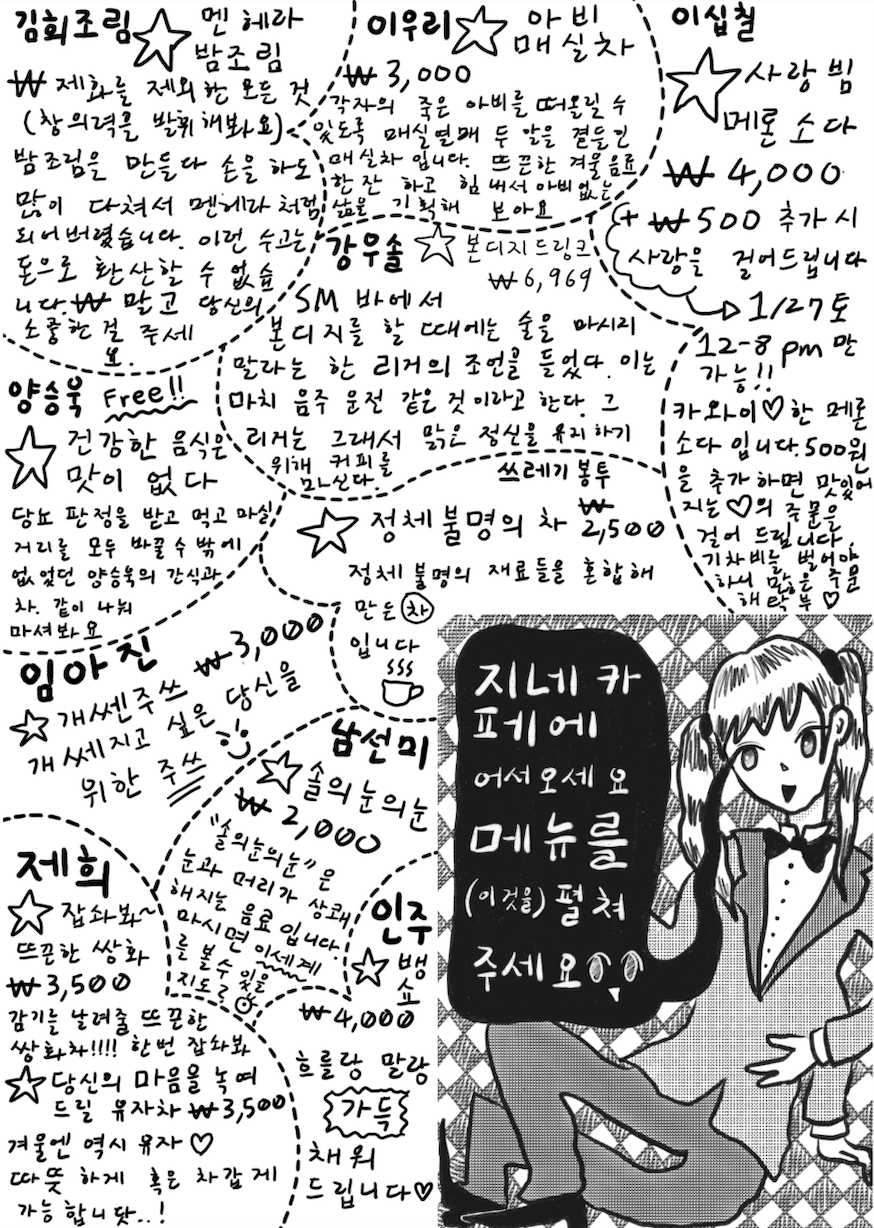 김희조림 ☆ 멘헤라
밤조림
₩ 재화를 제외한 모든 것
(창의력을 발휘해봐요)
밤조림을 만들다 손을 하도
많이 다쳐서 멘헤라처럼
되어버렸습니다. 이런 수고는
돈으로 환산할 수 없습
니다. ₩ 말고 당신의
소중한 걸 주세
요.
이우리 ☆ 아비
매실차
₩ 3,000
각자의 죽은 아비를 떠올릴 수
있도록 매실열매 두 알을 곁들인
매실차 입니다. 뜨끈한 겨울음료
한잔 하고 힘내서 아비없는
삶을 기획해 보아요
이십칠
☆ 사랑빔
메론소다
₩ 4,000
+ ₩500 추가시
사랑을 걸어드립니다
→ 1/27 토
12-8pm만
가능!!
카와이♡한 메론
소다 입니다. 500원
을 추가하면 맛있어
지는 ♡의 주문을
걸어 드립니다.
기차비를 벌어야
하니 많은 주문
해락부 ♡
강우솔 ☆ 본디지드링크
₩6,969
SM 바에서
본디지를 할 때에는 술을 마시지
말라는 한 리거의 조언을 들었다. 이는
마치 음주 운전 같은 것이라고 한다. 그
리거는 그래서 맑은 정신을 유지하기
위해 커피를
마신다.
양승욱 Free!!
☆ 건강한 음식은
맛이 없다
당뇨 판정을 받고 먹고 마실
거리를 모두 바꿀 수 밖에
없었던 양승욱의 간식과
차. 같이 나눠
마셔봐요
쓰레기봉투
☆ 정체불명의 차 ₩2,500
정체불명의 재료들을 혼합해
만든 차
입니다
임아진 ₩3,000
☆ 개쎈주쓰
개쎄지고 싶은 당신을
위한 주쓰
남선미
☆ 솔의눈의눈
₩ 2,000
"솔의눈의눈"은
눈과 머리가 상쾌
해지는 음료 입니다.
마시면 이세계
를 볼수 있을
지도?
제희
☆ 잡솨봐~
뜨끈한 쌍화
₩3,500
감기를 날려줄 뜨끈한
쌍화차!!!! 한번 잡솨봐
☆ 당신의 마음을 녹여
드릴 유자차 ₩3,500
겨울엔 역시 유자♡
따뜻하게 혹은 차갑게
가능합니닷..!
인주
☆ 뱅쇼
₩4,000
흐를랑 말랑
가득
채워
드립니다♡
지네 카
페에
어서오세요
메뉴를
(이것을) 펼쳐
주세요